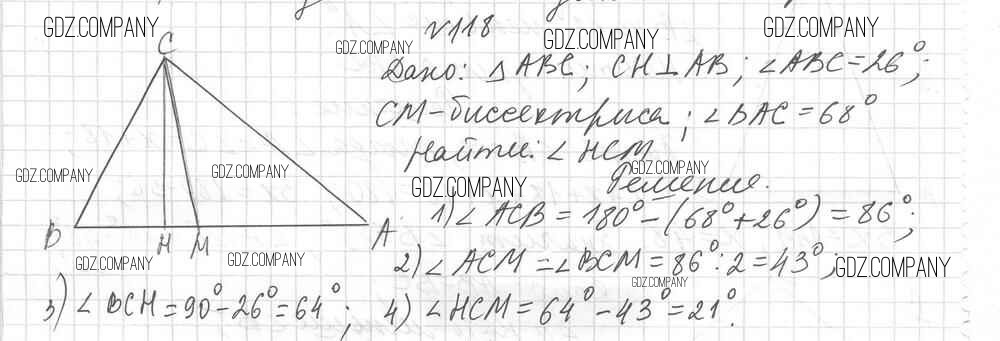 GDZ.COMPANY
GDZ.COMPANY
GDZ.COMPANY
GDZ.COMPANY
№118
C
Дано: △ABC; CH⊥AB; ∠ABC=26°;
CM-биссектриса; ∠BAC=68°
Найти: ∠HCM
GDZ.COMPANY
GDZ.COMPANY
GDZ.COMPANY
GDZ.COMPANY
Решение.
1) ∠ACB = 180°-(68°+26°) = 86°;
B H M A
2) ∠ACM = ∠BCM = 86°:2=43°;
GDZ.COMPANY
GDZ.COMPANY
GDZ.COMPANY
GDZ.COMPANY
3) ∠BCH=90°-26°=64°; 4) ∠HCM=64°-43°=21°.